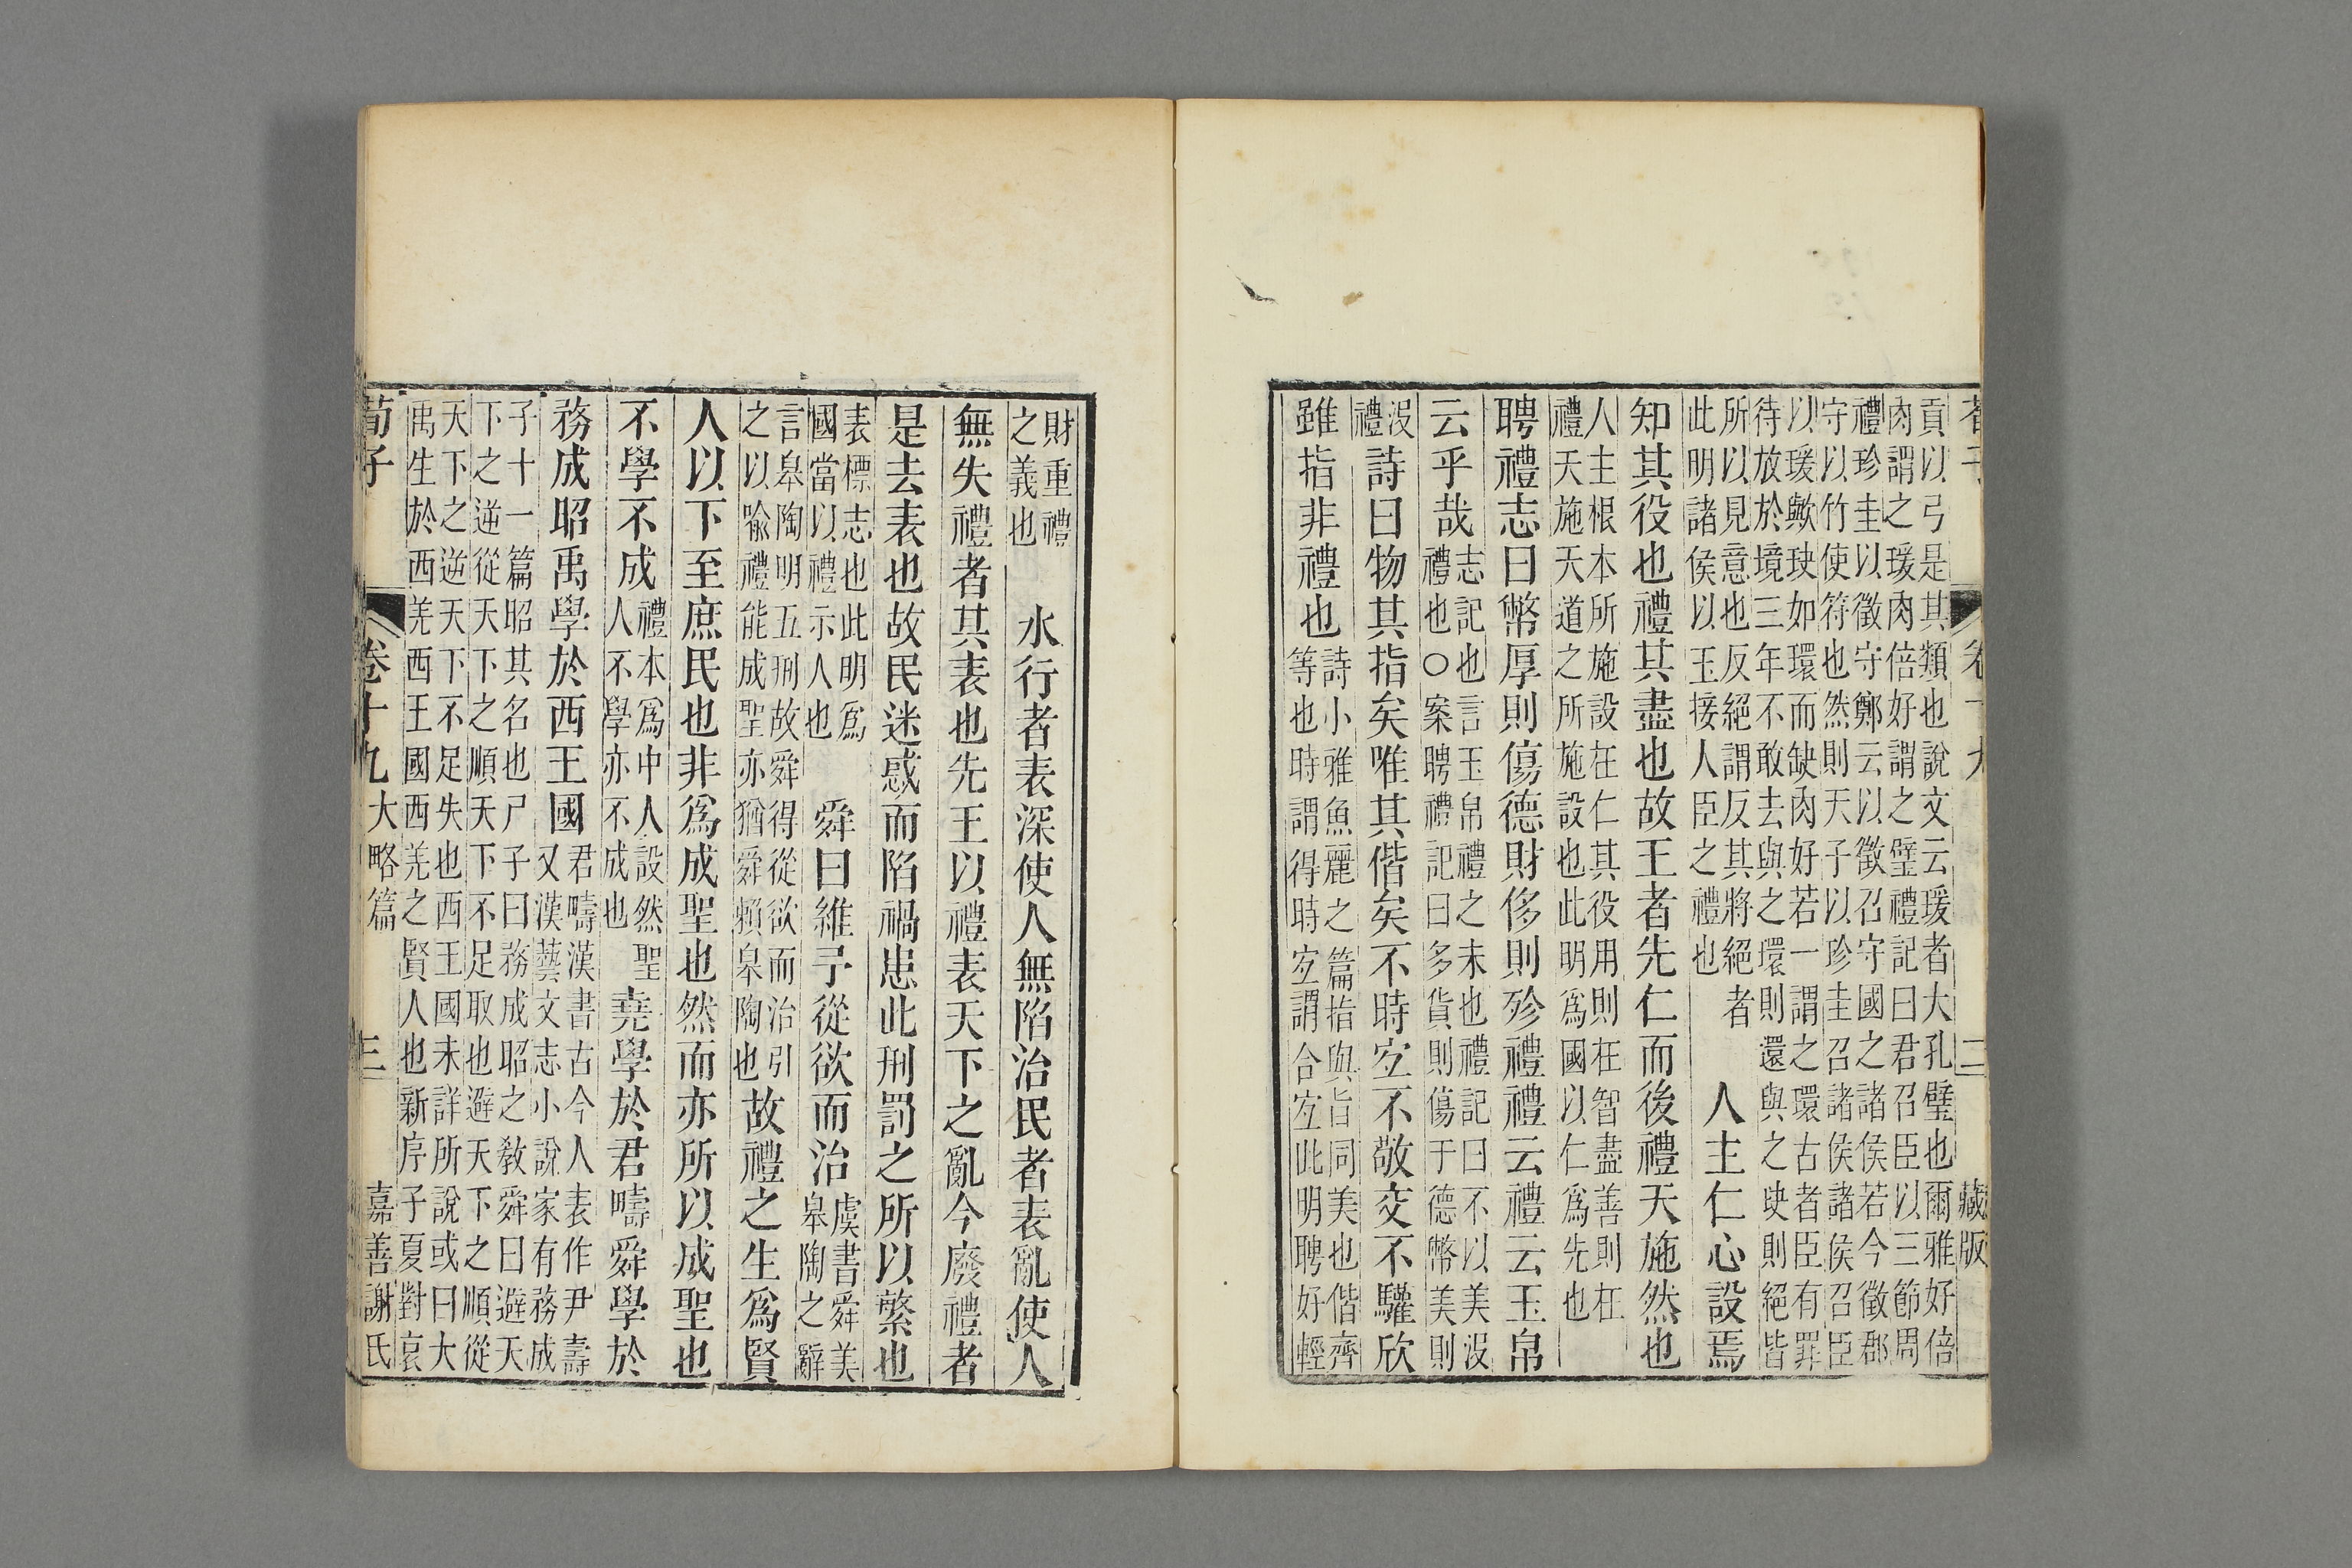 荀子 卷十九 二 藏版
貢以弓是其類也說文云瑗者大孔璧也爾雅好倍
肉謂之瑗肉倍好謂之璧禮記曰君召臣以三節周
禮珍圭以徵守鄭云以徵召守國之諸侯若今徵郡
守以竹使符也然則天子以珍圭召諸侯諸侯召臣
以瑗歟玦如環而缺肉好若一謂之環古者臣有罪
待放於境三年不敢去與之環則還與之玦則絕皆
所以見意也反絕謂反其將絕者
此明諸侯以玉接人臣之禮也
人主仁心設焉
知其役也禮其盡也故王者先仁而後禮天施然也
人主根本所施設在仁其役用則在智盡善則在
禮天施天道之所施設也此明爲國以仁爲先也
聘禮志曰幣厚則傷德財侈則殄禮禮云禮云玉帛
云乎哉
志記也言玉帛禮之末也禮記曰不以美沒
禮也○案聘禮記曰多貨則傷于德幣美則
沒
禮
詩曰物其指矣唯其偕矣不時宐不敬交不驩欣
雖指非禮也
詩小雅魚麗之篇指與旨同美也偕齊
等也時謂得時宐謂合宐此明聘好輕
財重禮
之義也
水行者表深使人無陷治民者表亂使人
無失禮者其表也先王以禮表天下之亂今廢禮者
是去表也故民迷惑而陷禍患此刑罰之所以繁也
表標志也此明爲
國當以禮示人也
舜曰維予從欲而治
虞書舜美
皋陶之辭
言皋陶明五刑故舜得從欲而治引
之以喻禮能成聖亦猶舜賴皋陶也
故禮之生爲賢
人以下至庶民也非爲成聖也然而亦所以成聖也
不學不成
禮本爲中人設然聖
人不學亦不成也
堯學於君疇舜學於
務成昭禹學於西王國
君疇漢書古今人表作尹壽
又漢藝文志小說家有務成
子十一篇昭其名也尸子曰務成昭之教舜曰避天
下之逆從天下之順天下不足取也避天下之順從
天下之逆天下不足失也西王國未詳所說或曰大
禹生於西羌西王國西羌之賢人也新序子夏對哀
荀子 卷十九 大略篇 三 嘉善謝氏